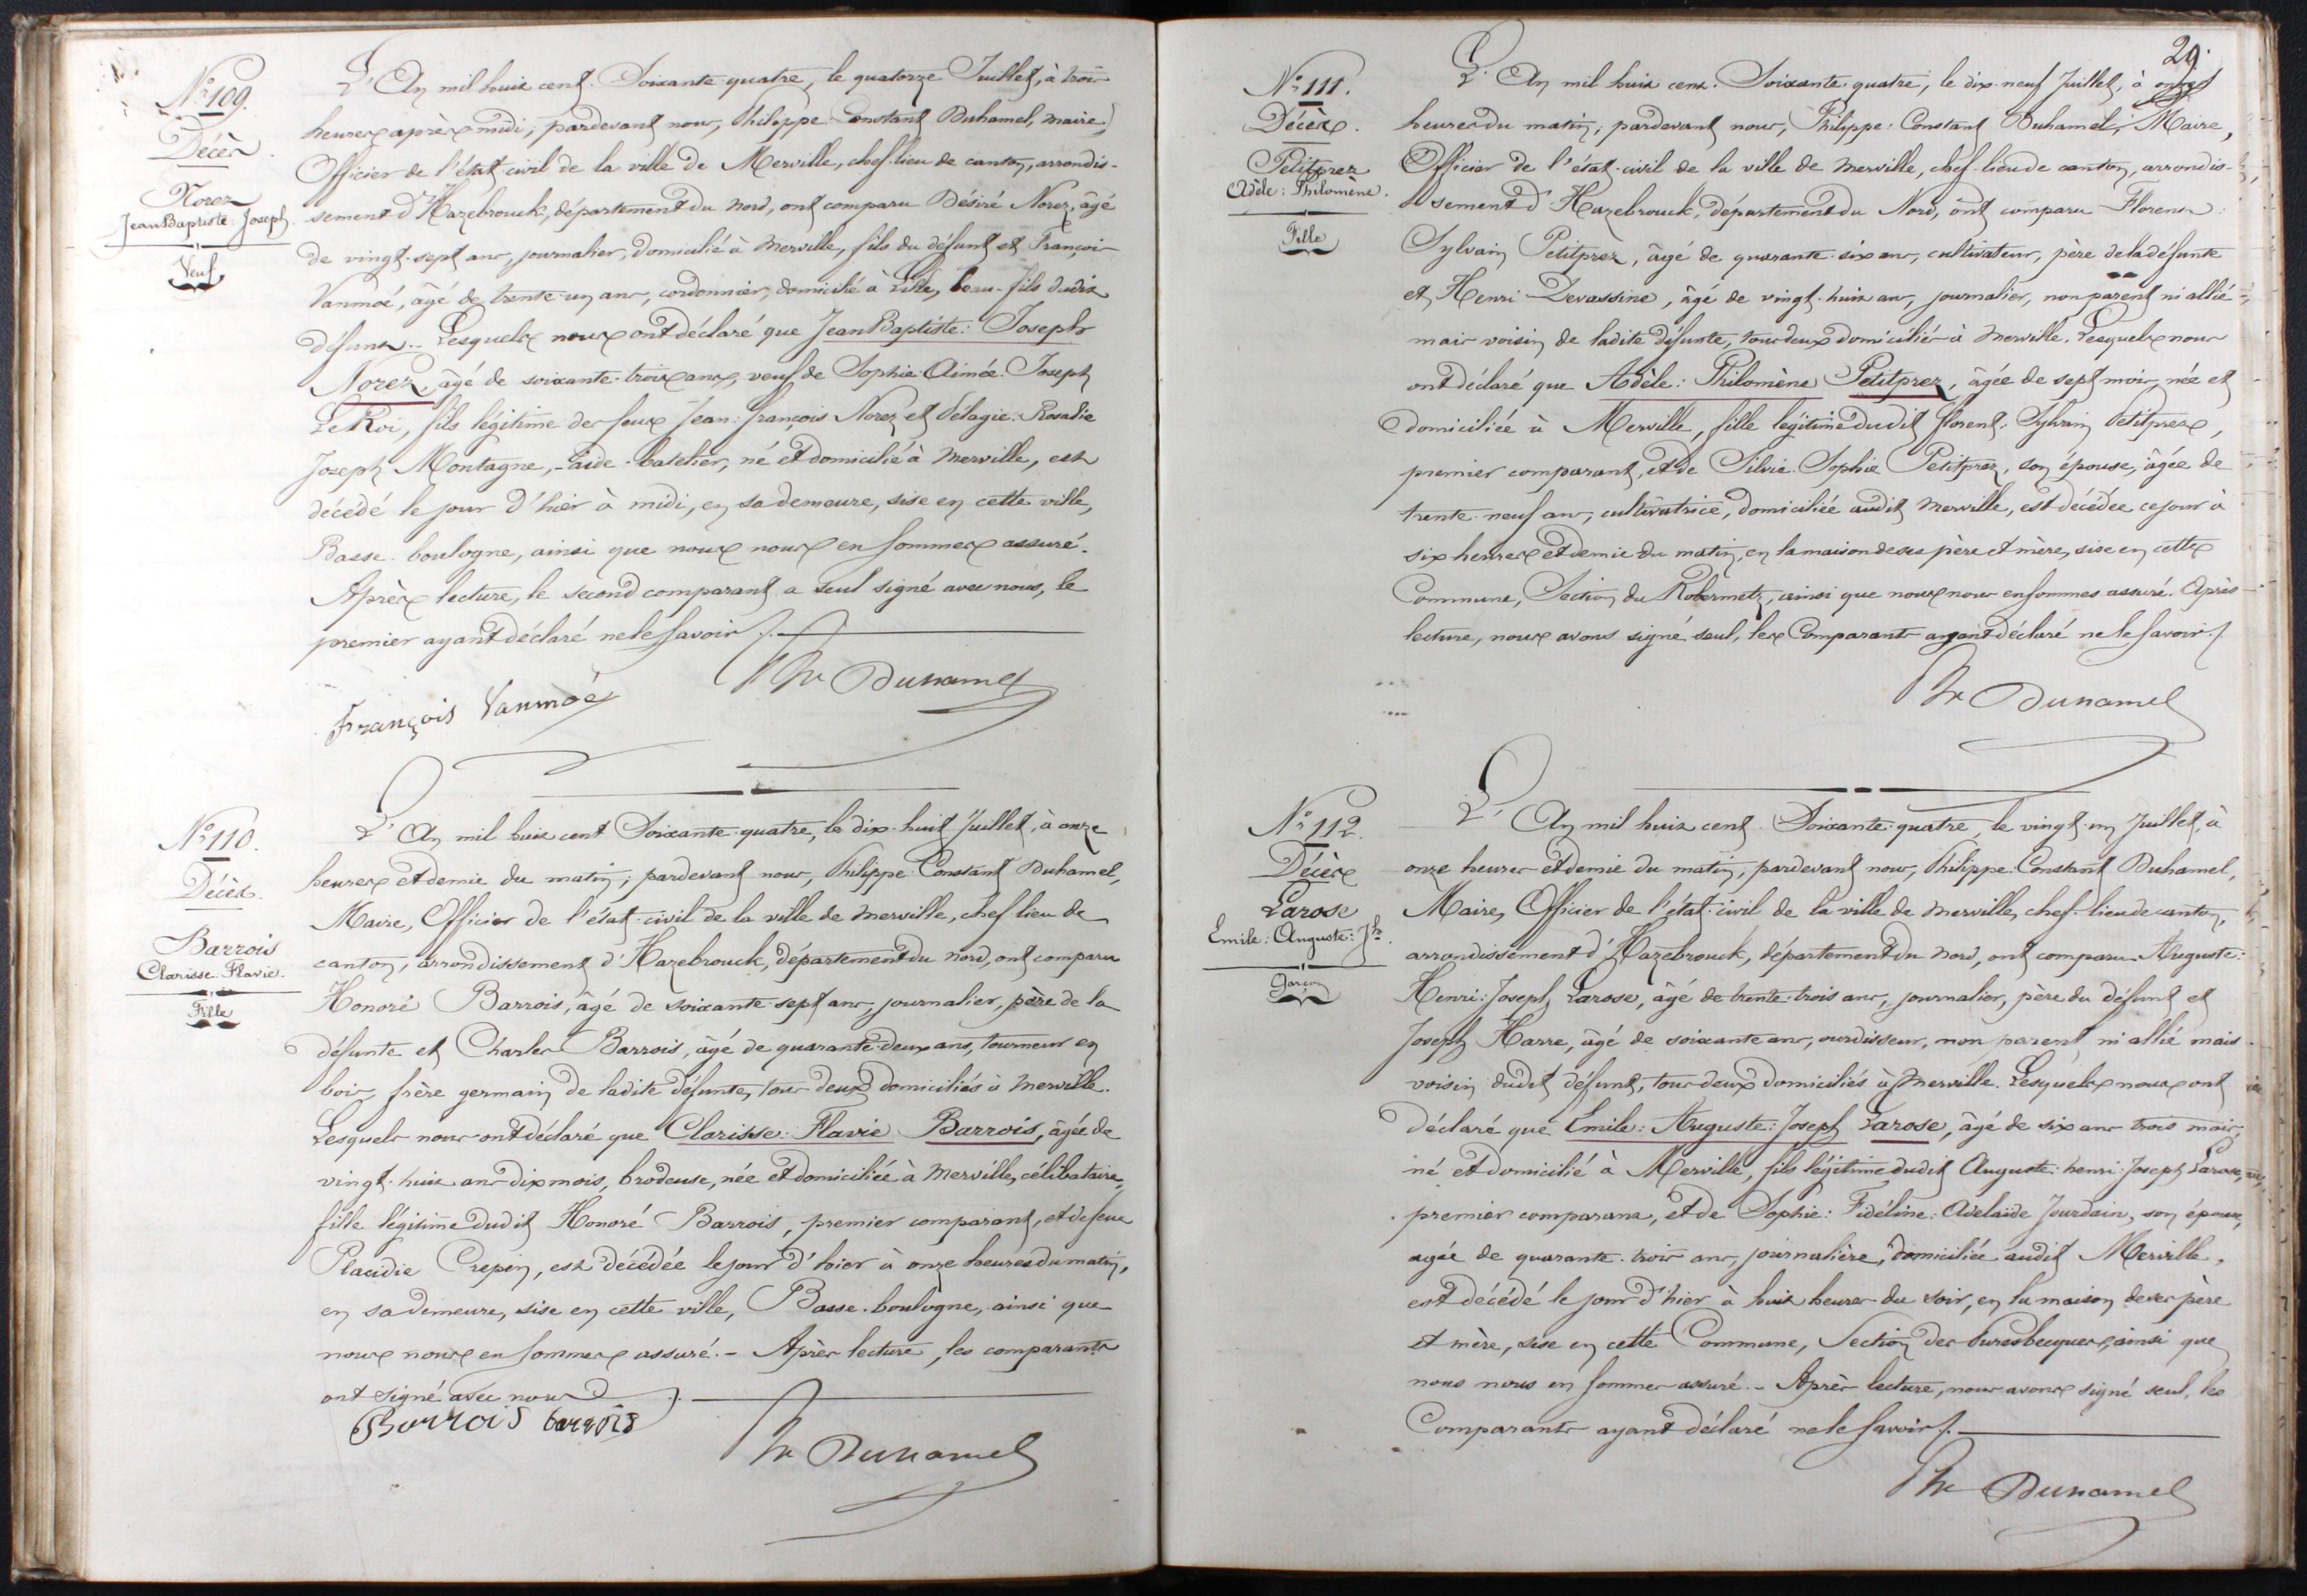 N.º 109.
Décès.
Norez
Jean Baptiste: Joseph.
Veuf
L'An mil huit cent Soixante quatre, le quatorze Juillet, à trois
heures après midi, pardevant nous, Philippe Constant Duhamel, Maire,
Officier de l'état civil de la ville de Merville, chef-lieu de canton, arrondis-
sement d'Hazebrouck, département du nord, ont comparu Désiré Norez, âgé
de vingt-sept ans, journalier, domicilié à Merville, fils du défunt et François
Vanmoé, âgé de trente-un ans, cordonnier, domicilié à Lille, beau-fils dudit
défunt.. Lesquels nous ont déclaré que Jean Baptiste: Joseph
Norez, âgé de soixante-trois ans, veuf de Sophie Aimée Joseph
LeRoi, fils légitime des feux Jean: françois Norez et Pélagie: Rosalie
Joseph Montagne, aide-batelier, né et domicilié à Merville, est
décédé le jour d'hier à midi, en sa demeure, sise en cette ville,
Basse-boulogne, ainsi que nous nous en sommes assuré.
Après lecture, le second comparant a seul signé avec nous, le
premier ayant déclaré ne le savoir ./.
François Vanmoé
Ph Duhamel
N.º 110.
Décès.
Barrois
Clarisse Flavie.
Fille
L'An mil huit cent Soixante quatre, le dix-huit Juillet, à onze
heures et demie du matin; pardevant nous, Philippe Constant Duhamel,
Maire, Officier de l'état-civil de la ville de Merville, chef-lieu de
canton, arrondissement d'Hazebrouck, département du nord, ont comparu
Honoré Barrois, âgé de soixante-sept ans, journalier, père de la
défunte et Charles Barrois, âgé de quarante-deux ans, tourneur en
bois, frère germain de ladite défunte, tous deux domiciliés à Merville.
Lesquels nous ont déclaré que Clarisse: Flavie Barrois, âgée de
vingt-huit ans dix mois, brodeuse, née et domiciliée à Merville, célibataire,
fille légitime dudit Honoré Barrois, premier comparant, et de feue
Placidie Crepin, est décédée le jour d'hier à onze heures du matin,
en sa demeure, sise en cette ville, Basse-boulogne, ainsi que
nous nous en sommes assuré.- Après lecture, les comparants
ont signé avec nous ./.
Barrois barrois
Ph Duhamel
29.
N.º 111.
Décès.
Petitprez
Adèle: Philomène.
Fille
L'An mil huit cent Soixante-quatre, le dix-neuf Juillet, à onze
heures du matin, pardevant nous, Philippe: Constant Duhamel, Maire,
Officier de l'état-civil de la ville de Merville, chef-lieu de canton, arrondis-
sement d'Hazebrouck, département du Nord, ont comparu Florent:
Sylvain Petitprez, âgé de quarante-six ans, cultivateur, père de la défunte
et Henri Devassine, âgé de vingt-huit ans, journalier, non parent ni allié
mais voisin de ladite défunte, tous deux domiciliés à Merville. Lesquels nous
ont déclaré que Adèle: Philomène Petitprez, âgée de sept mois, née et
domiciliée à Merville, fille légitime dudit florent: Sylvain Petitprez,
premier comparant, et de Silvie Sophie Petitprez, son épouse, âgée de
trente-neuf ans, cultivatrice, domiciliée audit Merville, est décédée ce jour à
six heures et demie du matin, en la maison de ses père et mère, sise en cette
Commune, Section du Robermetz, ainsi que nous nous en sommes assuré. Après
lecture, nous avons signé seul, les Comparants ayant déclaré ne le savoir ./.
Ph Duhamel
N.º 112.
Décès
Larose
Emile: Auguste: J.ph.
Garçon
L'An mil huit cent Soixante quatre, le vingt-un Juillet, à
onze heures et demie du matin, pardevant nous, Philippe Constant Duhamel,
Maire, Officier de l'état-civil de la ville de Merville, chef-lieu de canton,
arrondissement d'Hazebrouck, département du nord, ont comparu Auguste:
Henri: Joseph Larose, âgé de trente-trois ans, journalier, père du défunt et
Joseph Harre, âgé de soixante ans, ourdisseur, non parent ni allié mais
voisin dudit défunt, tous deux domiciliés à Merville. Lesquels nous ont
déclaré que Emile: Auguste: Joseph Larose, âgé de six ans trois mois,
né et domicilié à Merville, fils légitime dudit Auguste: henri: Joseph Larose,
premier comparant, et de Sophie: Fidéline: Adelaïde Jourdain, son épouse,
agée de quarante-trois ans, journalière, domiciliée audit Merville,
est décédé le jour d'hier à huit heures du soir, en la maison de ses père
et mère, sise en cette Commune, Section des Puresbecques, ainsi que
nous nous en sommes assuré.- Après lecture, nous avons signé seul, les
Comparants ayant déclaré ne le savoir ./.
Ph Duhamel